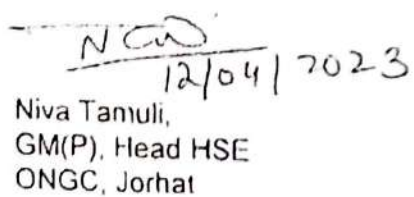 12/04/2023
Niva Tamuli,
GM(P), Head HSE
ONGC, Jorhat